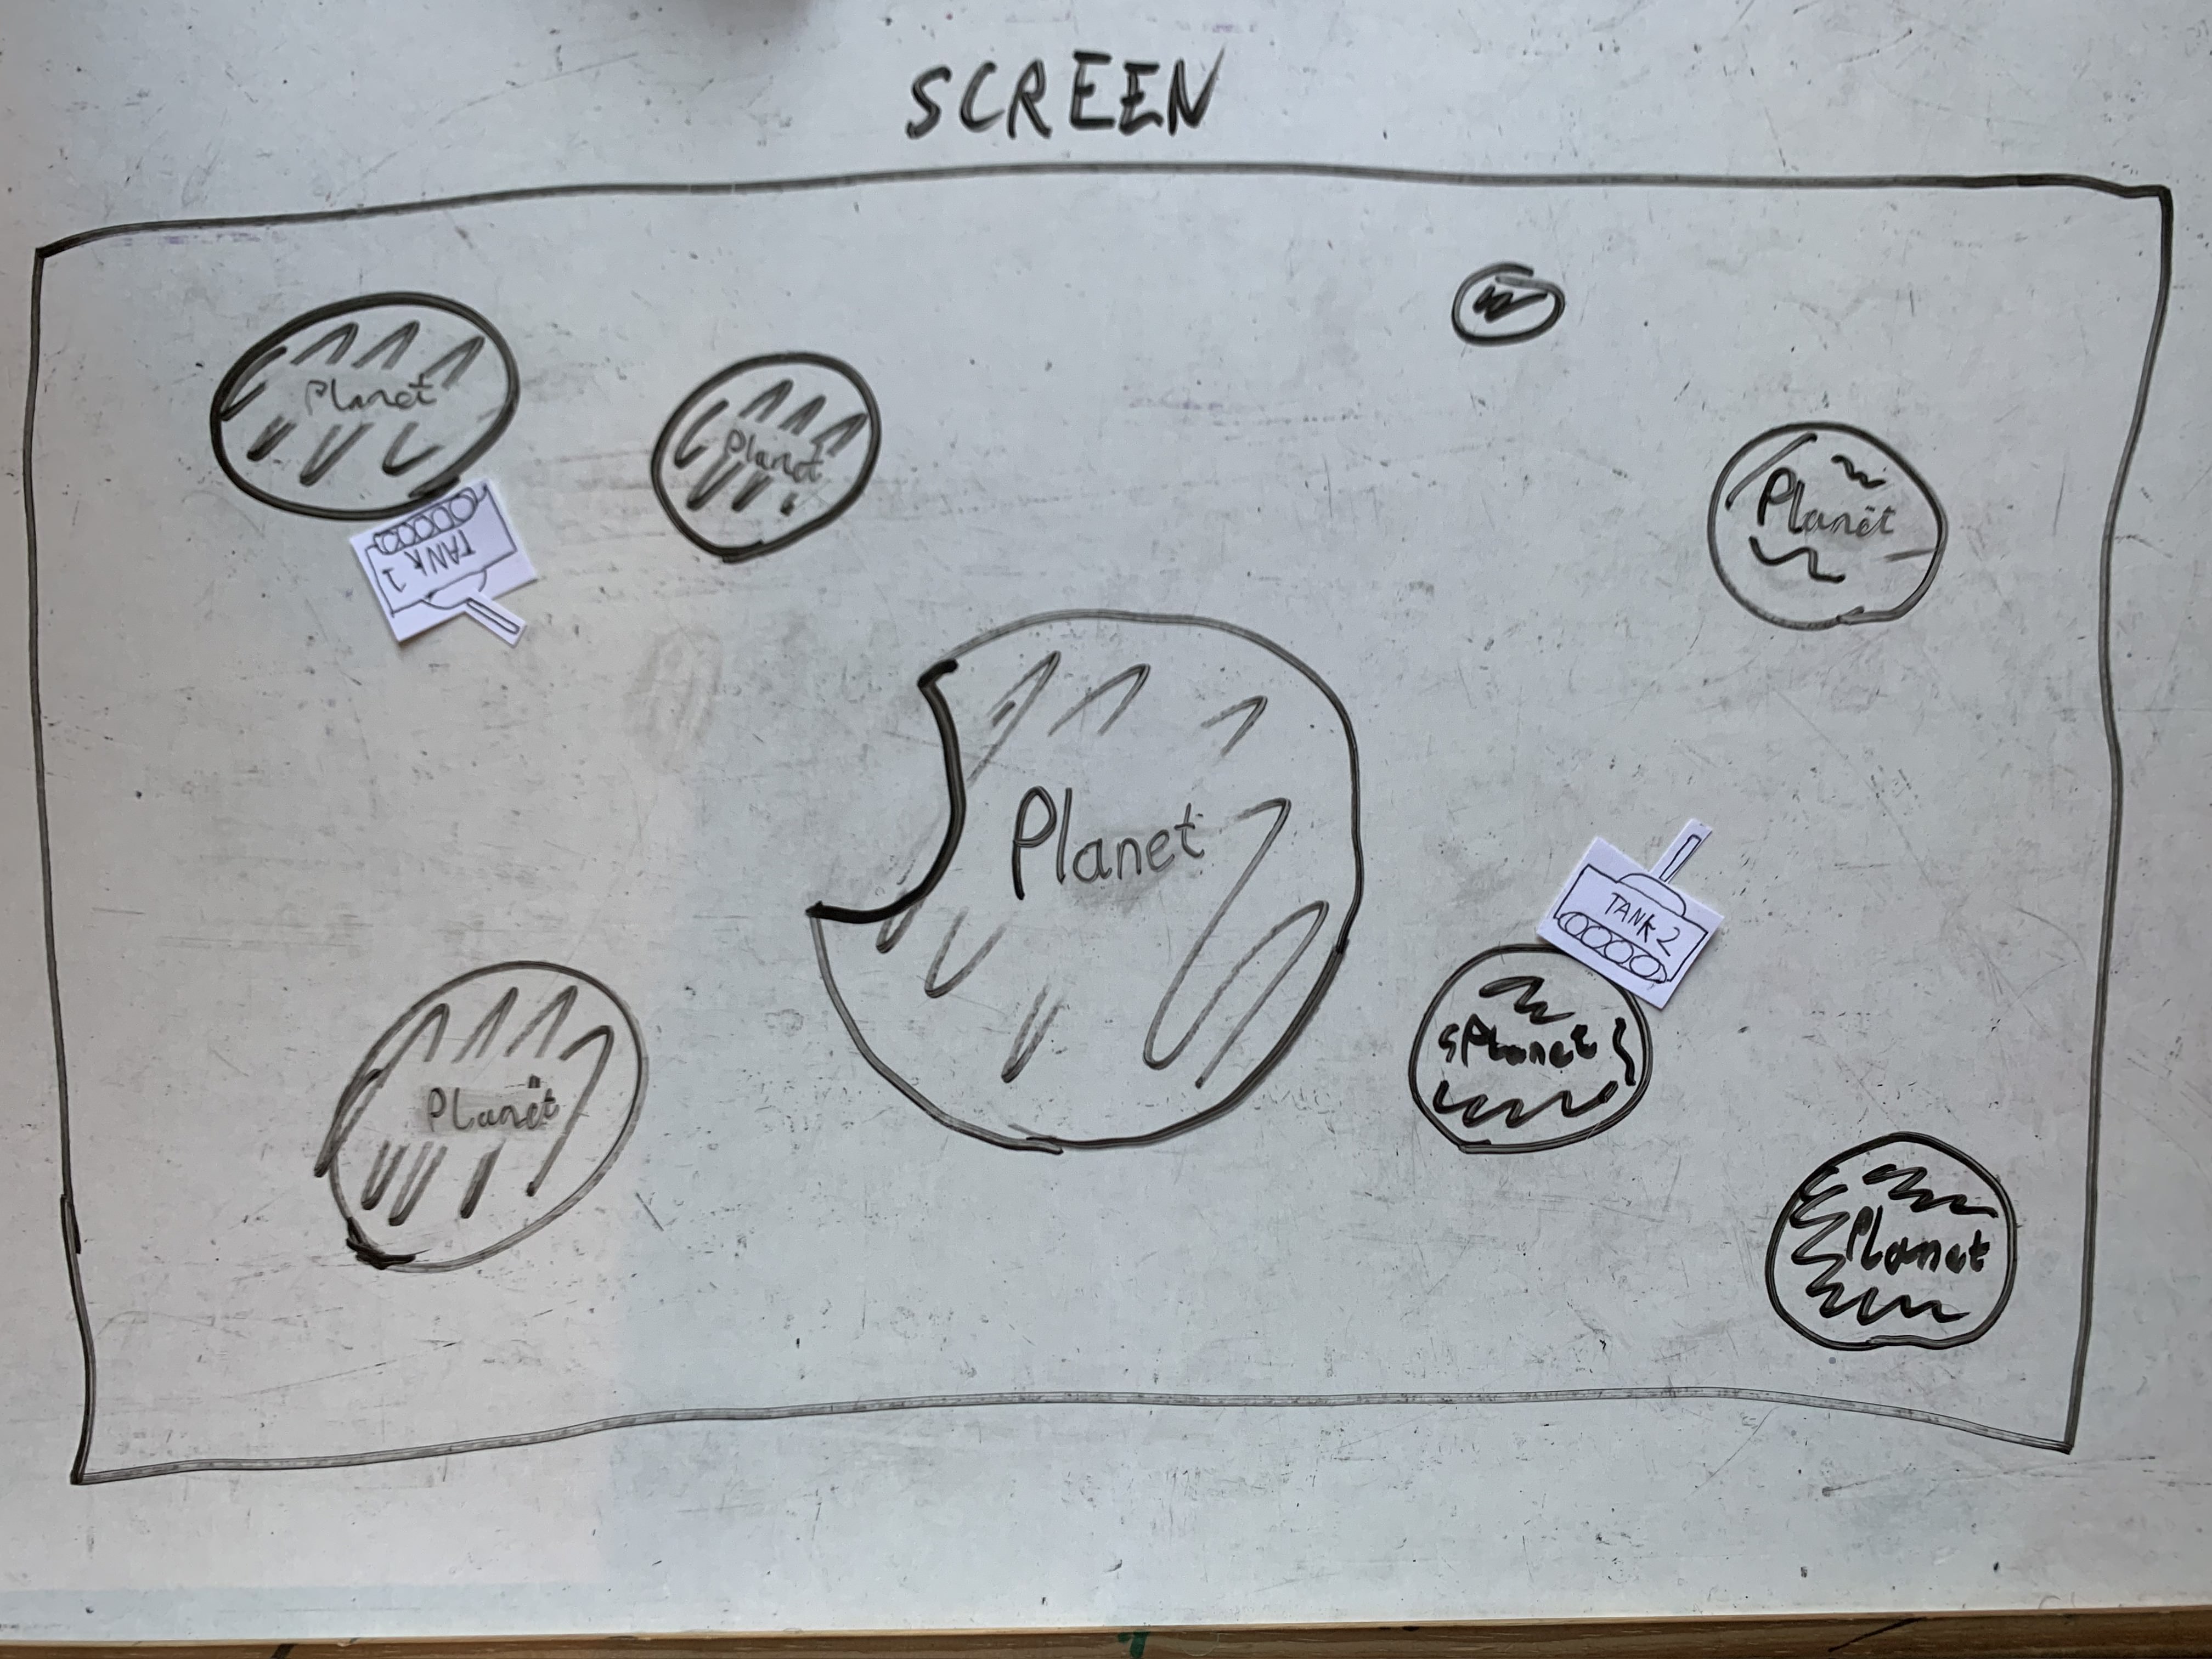 SCREEN
Planet
Planet
Planet
TANK 1
Planet
TANK 2
Planet
Planet
Planet